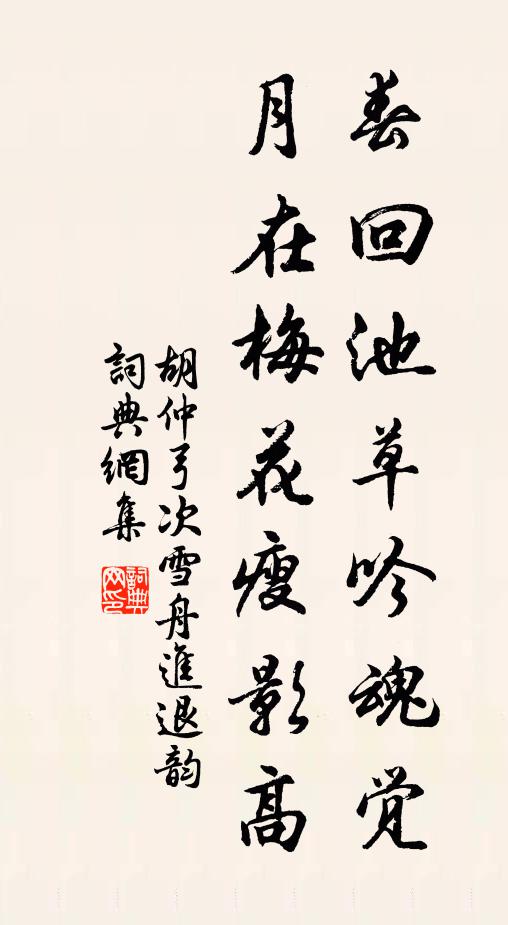 春回池草吟魂觉
月在梅花瘦影高
胡仲弓次雪舟進退韵
詞典網集
詞典
网印